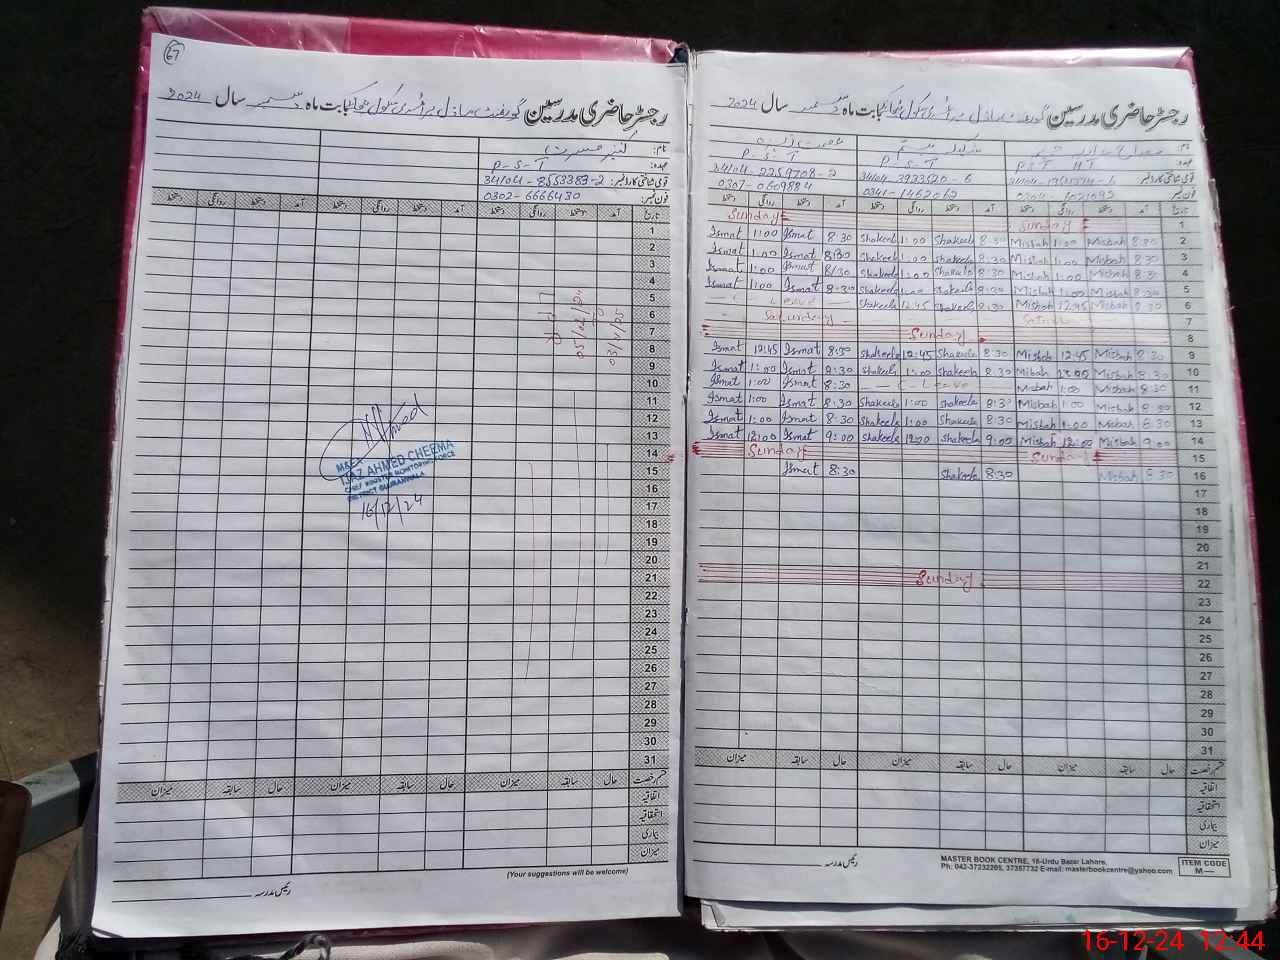 67
رجسٹر حاضری مدرسین گورنمنٹ ماڈل پرائمری سکول بابت ماہ دسمبر سال 2024
نام: کنیز مسرت
عہدہ: P-S-T
قومی شناختی کارڈ نمبر: 34104-8553383-2
فون نمبر: 0302-6666430
تاریخ آمد دستخط روانگی دستخط آمد دستخط روانگی دستخط آمد دستخط روانگی دستخط
1
2
3
4
5
6
7
8
9
10
11
12
13
14
15
16
17
18
19
20
21
22
23
24
25
26
27
28
29
30
31
05/02/24
M&EA
IJAZ AHMED CHEEMA
CHIEF MINISTER MONITORING FORCE
DISTRICT GUJRANWALA
16/12/24
قسم رخصت حال سابقہ میزان حال سابقہ میزان حال سابقہ میزان
اتفاقیہ
استحقاقیہ
بیماری
میزان
رئیس مدرسہ
(Your suggestions will be welcome)
رجسٹر حاضری مدرسین گورنمنٹ ماڈل پرائمری سکول بابت ماہ دسمبر سال 2024
نام:
عہدہ: PST HT P-S-T P-S-T
قومی شناختی کارڈ نمبر: 34104-3933520-6 34104-2259708-2
فون نمبر: 0341-1462062 0307-0609884
تاریخ آمد دستخط روانگی دستخط آمد دستخط روانگی دستخط آمد دستخط روانگی دستخط
Sunday Sunday 1
Ismat 1:00 Ismat 8:30 Shakeela 1:00 Shakeela 8:30 Misbah 1:00 Misbah 8:30 2
Ismat 1:00 Ismat 8:30 Shakeela 1:00 Shakeela 8:30 Misbah 1:00 Misbah 8:30 3
Ismat 1:00 Ismat 8:30 Shakeela 1:00 Shakeela 8:30 Misbah 1:00 Misbah 8:30 4
Ismat 1:00 Ismat 8:30 Shakeela 1:00 Shakeela 8:30 Misbah 1:00 Misbah 8:30 5
— C — Leave — Shakeela 12:45 Shakeela 8:30 Misbah 12:45 Misbah 8:30 6
Saturday 7
Sunday 8
Ismat 12:45 Ismat 8:30 Shakeela 12:45 Shakeela 8:30 Misbah 12:45 Misbah 8:30 9
Ismat 1:00 Ismat 8:30 Shakeela 1:00 Shakeela 8:30 Misbah Misbah 8:30 10
Ismat 1:00 Ismat 8:30 — C - Leave Misbah 1:00 Misbah 8:30 11
Ismat 1:00 Ismat 8:30 Shakeela 1:00 Shakeela 8:30 Misbah 1:00 Misbah 8:30 12
Ismat 1:00 Ismat 8:30 Shakeela 1:00 Shakeela 8:30 Misbah 1:00 Misbah 8:30 13
Ismat 12:00 Ismat 9:00 Shakeela 12:00 Shakeela 9:00 Misbah 12:00 Misbah 9:00 14
Sunday Sunday 15
Ismat 8:30 Shakeela 8:30 Misbah 8:30 16
17
18
19
20
21
Sunday 22
23
24
25
26
27
28
29
30
31
قسم رخصت حال سابقہ میزان حال سابقہ میزان حال سابقہ میزان
اتفاقیہ
استحقاقیہ
بیماری
میزان
رئیس مدرسہ
MASTER BOOK CENTRE, 16-Urdu Bazar Lahore.
Ph: 042-37232265, 37357732 E-mail: masterbookcentre@yahoo.com
ITEM CODE
M—
16-12-24 12:44